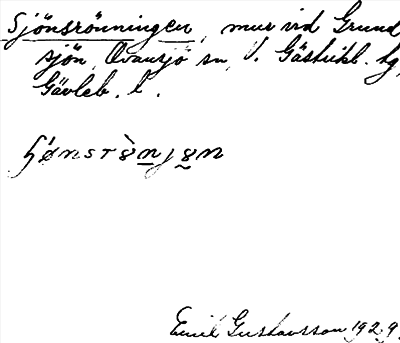 Sjönsrönningen, mur vid Grund
sjön, Ovansjö sn, V. Gästrikl. tg,
Gävleb. l.
ɧǿnsrønjøn
Emil Gustavsson 1929.